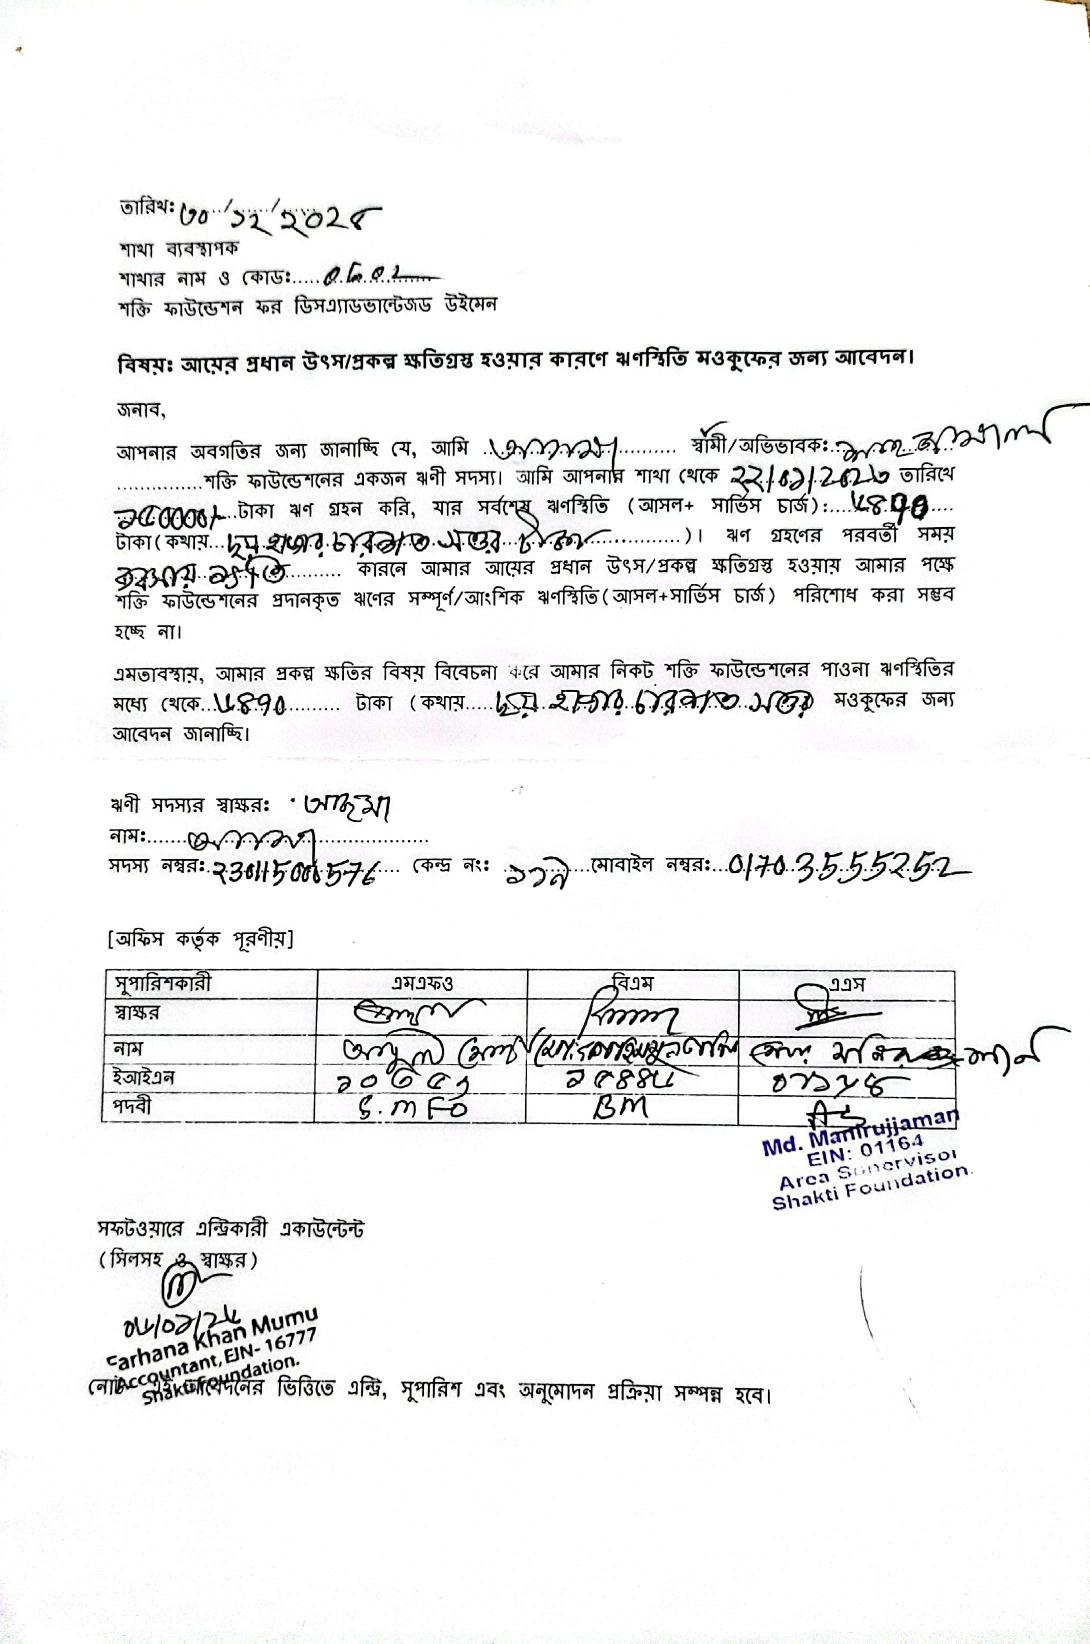 তারিখ: ৩০/১২/২০২৪
শাখা ব্যবস্থাপক
শাখার নাম ও কোড:
শক্তি ফাউন্ডেশন ফর ডিসএ্যাডভান্টেজড উইমেন
বিষয়: আয়ের প্রধান উৎস/প্রকল্প ক্ষতিগ্রস্ত হওয়ার কারণে ঋণস্থিতি মওকুফের জন্য আবেদন।
জনাব,
আপনার অবগতির জন্য জানাচ্ছি যে, আমি স্বামী/অভিভাবক:
শক্তি ফাউন্ডেশনের একজন ঋণী সদস্য। আমি আপনার শাখা থেকে ২২/০১/২০২৩ তারিখে
১৫০০০০/- টাকা ঋণ গ্রহন করি, যার সর্বশেষ ঋণস্থিতি (আসল+ সার্ভিস চার্জ): ৬৪৭০
টাকা (কথায় ছয় হাজার চারশত সত্তর টাকা)। ঋণ গ্রহণের পরবর্তী সময়
ব্যবসায় ক্ষতি কারনে আমার আয়ের প্রধান উৎস/প্রকল্প ক্ষতিগ্রস্ত হওয়ায় আমার পক্ষে
শক্তি ফাউন্ডেশনের প্রদানকৃত ঋণের সম্পূর্ণ/আংশিক ঋণস্থিতি(আসল+সার্ভিস চার্জ) পরিশোধ করা সম্ভব
হচ্ছে না।
এমতাবস্থায়, আমার প্রকল্প ক্ষতির বিষয় বিবেচনা করে আমার নিকট শক্তি ফাউন্ডেশনের পাওনা ঋণস্থিতির
মধ্যে থেকে ৬৪৭০ টাকা (কথায় ছয় হাজার চারশত সত্তর মওকুফের জন্য
আবেদন জানাচ্ছি।
ঋণী সদস্যর স্বাক্ষর:
নাম:
সদস্য নম্বর: কেন্দ্র নং: মোবাইল নম্বর: 01703555252
[অফিস কর্তৃক পূরণীয়]
সুপারিশকারী এমএফও বিএম এএস
স্বাক্ষর
নাম
ইআইএন
পদবী S.MFO BM AS
Md. Manirujjaman
EIN: 01164
Area Supervisor
Shakti Foundation.
সফটওয়ারে এন্ট্রিকারী একাউন্টেন্ট
(সিলসহ ও স্বাক্ষর)
Farhana Khan Mumu
Accountant, EIN- 16777
Shakti Foundation.
নোট: এই আবেদনের ভিত্তিতে এন্ট্রি, সুপারিশ এবং অনুমোদন প্রক্রিয়া সম্পন্ন হবে।